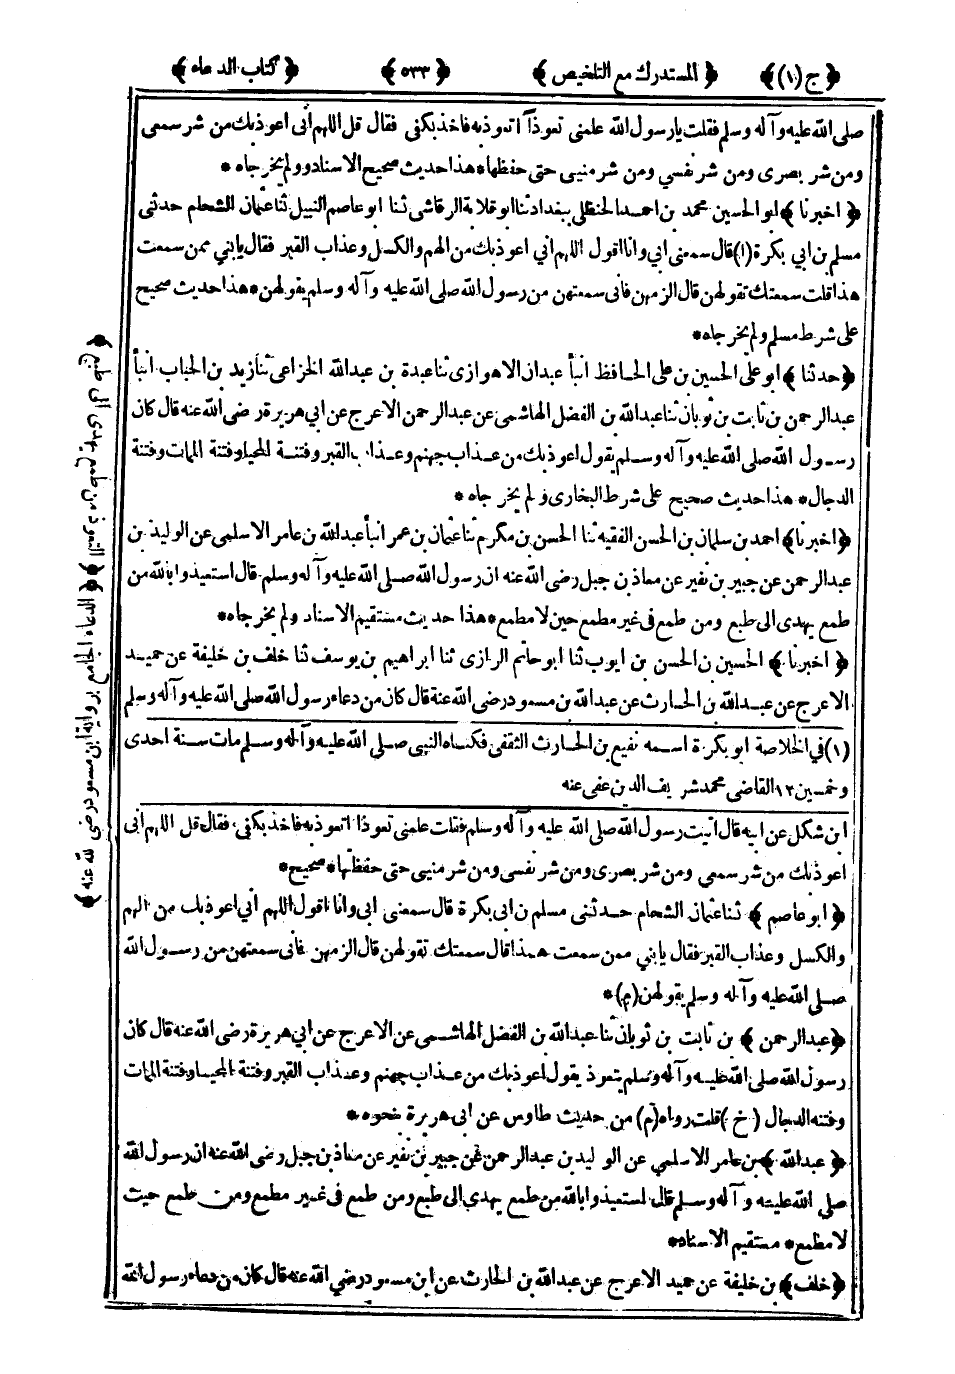 ﴿ ج (١) ﴾ ﴿ المستدرك مع التلخيص ﴾ ﴿ ٥٣٣ ﴾ ﴿ كتاب الدعاء ﴾
صلى الله عليه وآله وسلم فقلت يا رسول الله علمني تعوذاً اتعوذ به فاخذ بكفى فقال قل اللهم انى اعوذ بك من شر سمعى
ومن شر بصرى ومن شر نفسي ومن شر منيي حتى حفظها * هذا حديث صحيح الاسناد ولم يخرجاه *
﴿ اخبرنا ﴾ ابو الحسين محمد بن احمد الحنظلى ببغداد ثنا ابو قلابة الرقاشى ثنا ابو عاصم النبيل ثنا عثمان الشحام حدثنى
مسلم بن ابي بكرة (١) قال سمعنى ابي وانا اقول اللهم اني اعوذ بك من الهم والكسل وعذاب القبر فقال يابني ممن سمعت
هذا قلت سمعتك تقولهن قال الزمهن فانى سمعتهن من رسول الله صلى الله عليه وآله وسلم يقولهن * هذا حديث صحيح
على شرط مسلم ولم يخرجاه *
﴿ حدثنا ﴾ ابو على الحسين بن على الحافظ انبأ عبدان الاهوازى ثنا عبدة بن عبدالله الخزاعى ثنا زيد بن الحباب انبأ
عبدالرحمن بن ثابت بن ثوبان ثنا عبدالله بن الفضل الهاشمى عن عبدالرحمن الاعرج عن ابي هريرة رضى الله عنه قال كان
رسول الله صلى الله عليه وآله وسلم يقول اعوذ بك من عذاب جهنم وعذاب القبر وفتنة المحيا وفتنة الممات وفتنة
الدجال * هذا حديث صحيح على شرط البخارى ولم يخرجاه *
﴿ اخبرنا ﴾ احمد بن سلمان بن الحسن الفقيه ثنا الحسن بن مكرم ثنا عثمان بن عمر انبأ عبدالله بن عامر الاسلمى عن الوليد بن
عبدالرحمن عن جبير بن نفير عن معاذ بن جبل رضى الله عنه ان رسول الله صلى الله عليه وآله وسلم قال استعيذوا بالله من
طمع يهدى الى طبع ومن طمع فى غير مطمع حين لا مطمع * هذا حديث مستقيم الاسناد ولم يخرجاه *
﴿ اخبرنا ﴾ الحسين بن الحسن بن ايوب ثنا ابو حاتم الرازى ثنا ابراهيم بن يوسف ثنا خلف بن خليفة عن حميد
الاعرج عن عبدالله بن الحارث عن عبدالله بن مسعود رضى الله عنه قال كان من دعاء رسول الله صلى الله عليه وآله وسلم
(١) في الخلاصة ابو بكرة اسمه نفيع بن الحارث الثقفى فكناه النبى صلى الله عليه وآله وسلم مات سنة احدى
وخمسين ١٢ القاضى محمد شريف الدين عفى عنه
ابن شكل عن ابيه قال اتيت رسول الله صلى الله عليه وآله وسلم فقلت علمنى تعوذا اتعوذ به فاخذ بكفى فقال قل اللهم انى
اعوذ بك من شر سمعي ومن شر بصرى ومن شر نفسى ومن شر منيى حتى حفظتها * صحيح *
﴿ ابو عاصم ﴾ ثنا عثمان الشحام حدثنى مسلم بن ابى بكرة قال سمعنى ابى وانا اقول اللهم انى اعوذ بك من الهم
والكسل وعذاب القبر فقال يابني ممن سمعت هذا قال سمعتك تقولهن قال الزمهن فانى سمعتهن من رسول الله
صلى الله عليه وآله وسلم يقولهن (م) *
﴿ عبدالرحمن ﴾ بن ثابت بن ثوبان ثنا عبدالله بن الفضل الهاشمى عن الاعرج عن ابي هريرة رضى الله عنه قال كان
رسول الله صلى الله عليه وآله وسلم يتعوذ يقول اعوذ بك من عذاب جهنم وعذاب القبر وفتنة المحيا وفتنة الممات
وفتنه الدجال (خ) قلت رواه (م) من حديث طاوس عن ابى هريرة نحوه *
﴿ عبدالله ﴾ بن عامر الاسلمي عن الوليد بن عبدالرحمن عن جبير بن نفير عن معاذ بن جبل رضى الله عنه ان رسول الله
صلى الله عليه وآله وسلم قال استعيذوا بالله من طمع يهدي الى طبع ومن طمع فى غير مطمع ومن طمع حيث
لا مطمع * مستقيم الاسناد *
﴿ خلف ﴾ بن خليفة عن حميد الاعرج عن عبدالله بن الحارث عن ابن مسعود رضي الله عنه قال كان من دعاء رسول الله
﴿ التعوذ من طمع يهدى الى طبع ﴾
﴿ الدعاء الجامع برواية ابن مسعود رضى الله عنه ﴾